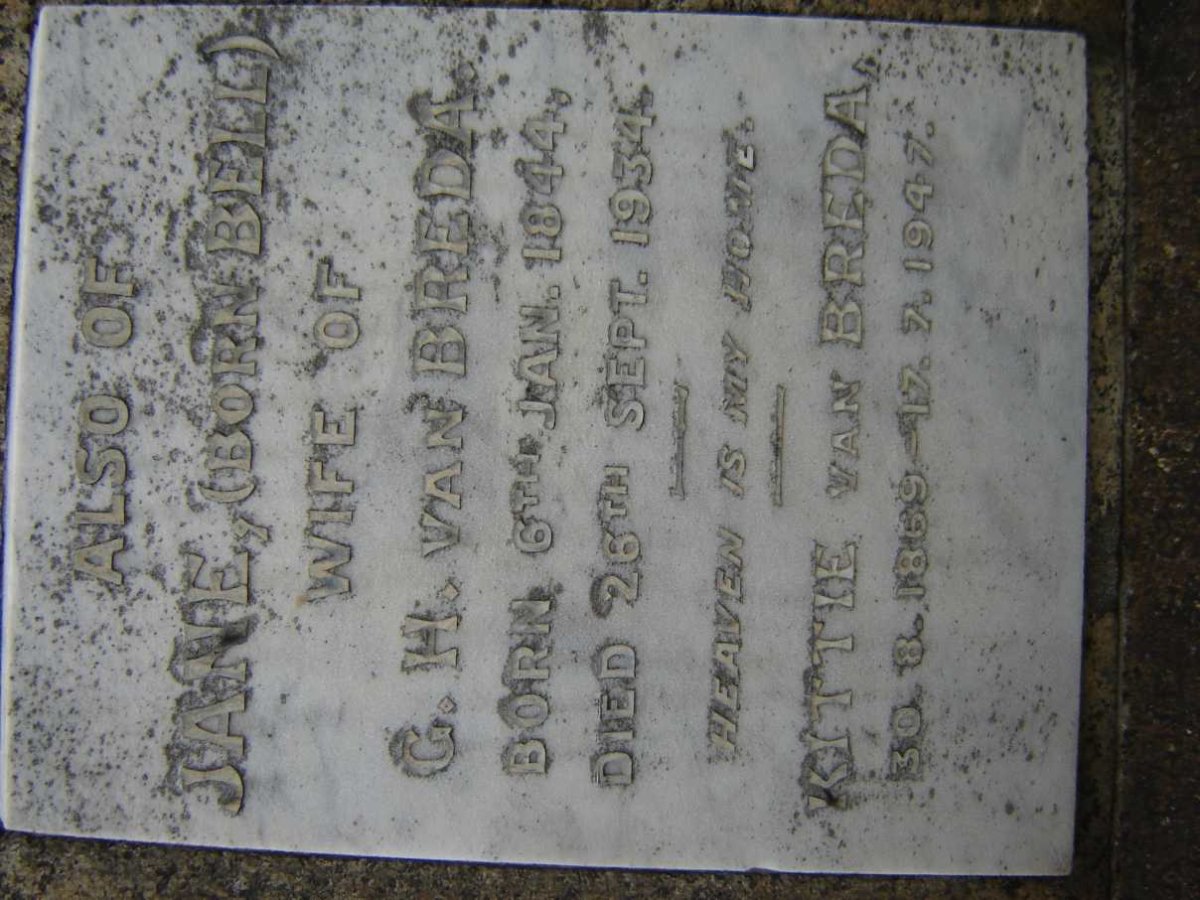 ALSO OF
JANE, (BORN BELL)
WIFE OF
G. H. VAN BREDA.
BORN 6TH JAN. 1844.
DIED 26TH SEPT. 1934.
HEAVEN IS MY HOME.
KITTIE VAN BREDA,
30. 8. 1869 – 17. 7. 1947.